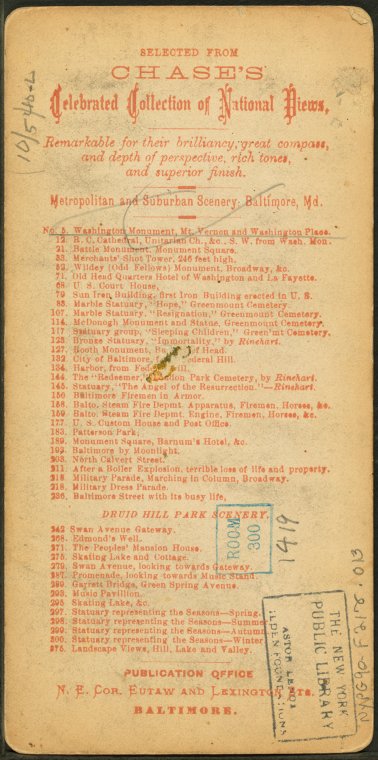 SELECTED FROM
CHASE'S
Celebrated Collection of National Views,
Remarkable for their brilliancy, great compass,
and depth of perspective, rich tones,
and superior finish.
Metropolitan and Suburban Scenery, Baltimore, Md.
No. 5. Washington Monument, Mt. Vernon and Washington Place.
12. R. C. Cathedral, Unitarian Ch., &c., S. W. from Wash. Mon.
21. Battle Monument, Monument Square.
33. Merchants' Shot Tower, 246 feet high.
52. Wildey (Odd Fellows) Monument, Broadway, &c.
71. Old Head Quarters Hotel of Washington and La Fayette.
68. U. S. Court House,
79 Sun Iron Building, first Iron Building erected in U. S.
85. Marble Statuary, "Hope," Greenmount Cemetery.
107. Marble Statuary, "Resignation," Greenmount Cemetery.
114. McDonogh Monument and Statue, Greenmount Cemetery.
117 Statuary group, "Sleeping Children," Green'mt Cemetery.
123. Bronze Statuary, "Immortality," by Rinehart.
127. Booth Monument, of Head.
132. City of Baltimore, Federal Hill.
134. Harbor, from Fed Hill.
144. The "Redeemer," on Park Cemetery, by Rinehart.
145. Statuary, "The Angel of the Resurrection."—Rinehart.
150 Baltimore Firemen in Armor.
158. Balto. Steam Fire Depmt. Apparatus, Firemen, Horses, &c.
159. Balto. Steam Fire Depmt. Engine, Firemen, Horses, &c.
177. U. S. Custom House and Post Office.
183. Patterson Park,
189. Monument Square, Barnum's Hotel, &c.
193. Baltimore by Moonlight.
203. North Calvert Street.
211. After a Boiler Explosion, terrible loss of life and property.
215. Military Parade, Marching in Column, Broadway.
218. Military Dress Parade.
236. Baltimore Street with its busy life,
DRUID HILL PARK SCENERY.
242 Swan Avenue Gateway.
268. Edmond's Well.
271. The Peoples' Mansion House.
275. Skating Lake and Cottage.
279. Swan Avenue, looking towards Gateway.
287. Promenade, looking towards Music Stand.
290. Garrett Bridge, Green Spring Avenue.
293. Music Pavillion.
295. Skating Lake, &c.
297. Statuary representing the Seasons—Spring.
298. Statuary representing the Seasons—Summer
299. Statuary representing the Seasons—Autumn
300. Statuary representing the Seasons—Winter
375. Landscape Views, Hill, Lake and Valley.
PUBLICATION OFFICE
N. E. COR. EUTAW and LEXINGTON STS.
BALTIMORE.
ROOM
300
1419
THE NEW YORK
PUBLIC LIBRARY
ASTOR LENOX
TILDEN FOUNDATIONS